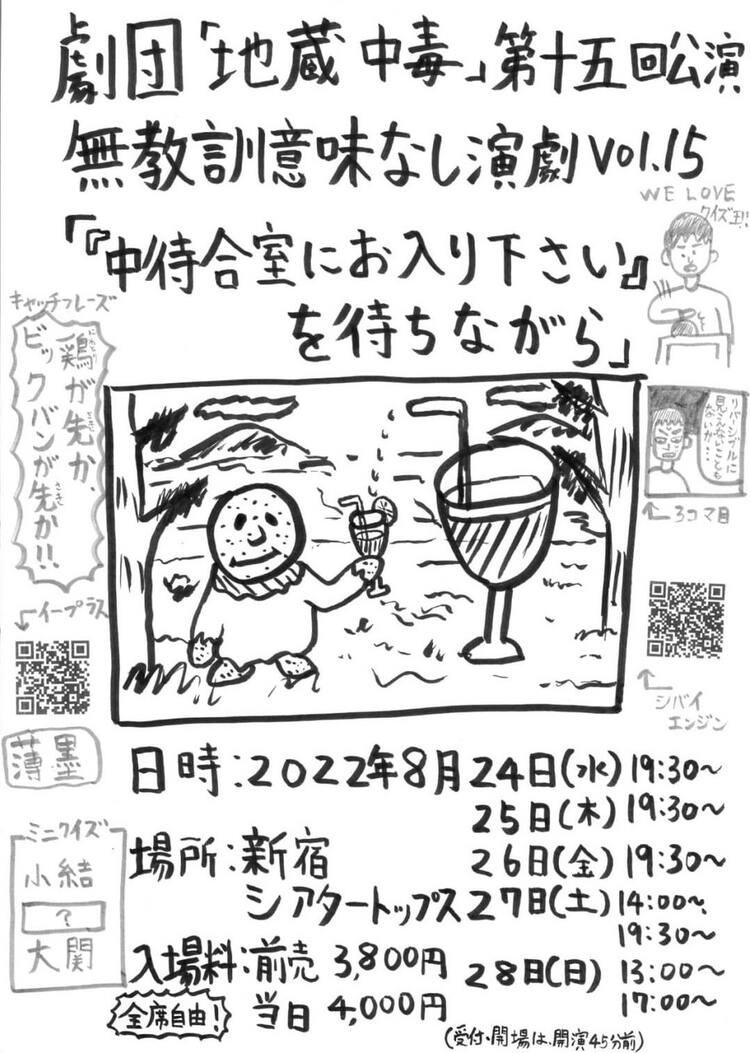 劇団「地蔵中毒」第十五回公演
無教訓意味なし演劇vol.15
「『中待合室にお入り下さい』
を待ちながら」
WE LOVE
クイズ王!!
キャッチフレーズ
鶏が先か、
にわとり
さき
ビックバンが先か!!
さき
リバーシブルに
見えないことも
ないが…
3コマ目
イープラス
シバイ
エンジン
薄墨
日時:2022年8月24日(水)19:30〜
25日(木)19:30〜
26日(金)19:30〜
27日(土)14:00〜、
19:30〜
28日(日)13:00〜
17:00〜
場所:新宿
シアタートップス
ミニクイズ
小結
?
大関
入場料:前売 3,800円
当日 4,000円
全席自由!
(受付・開場は、開演45分前)